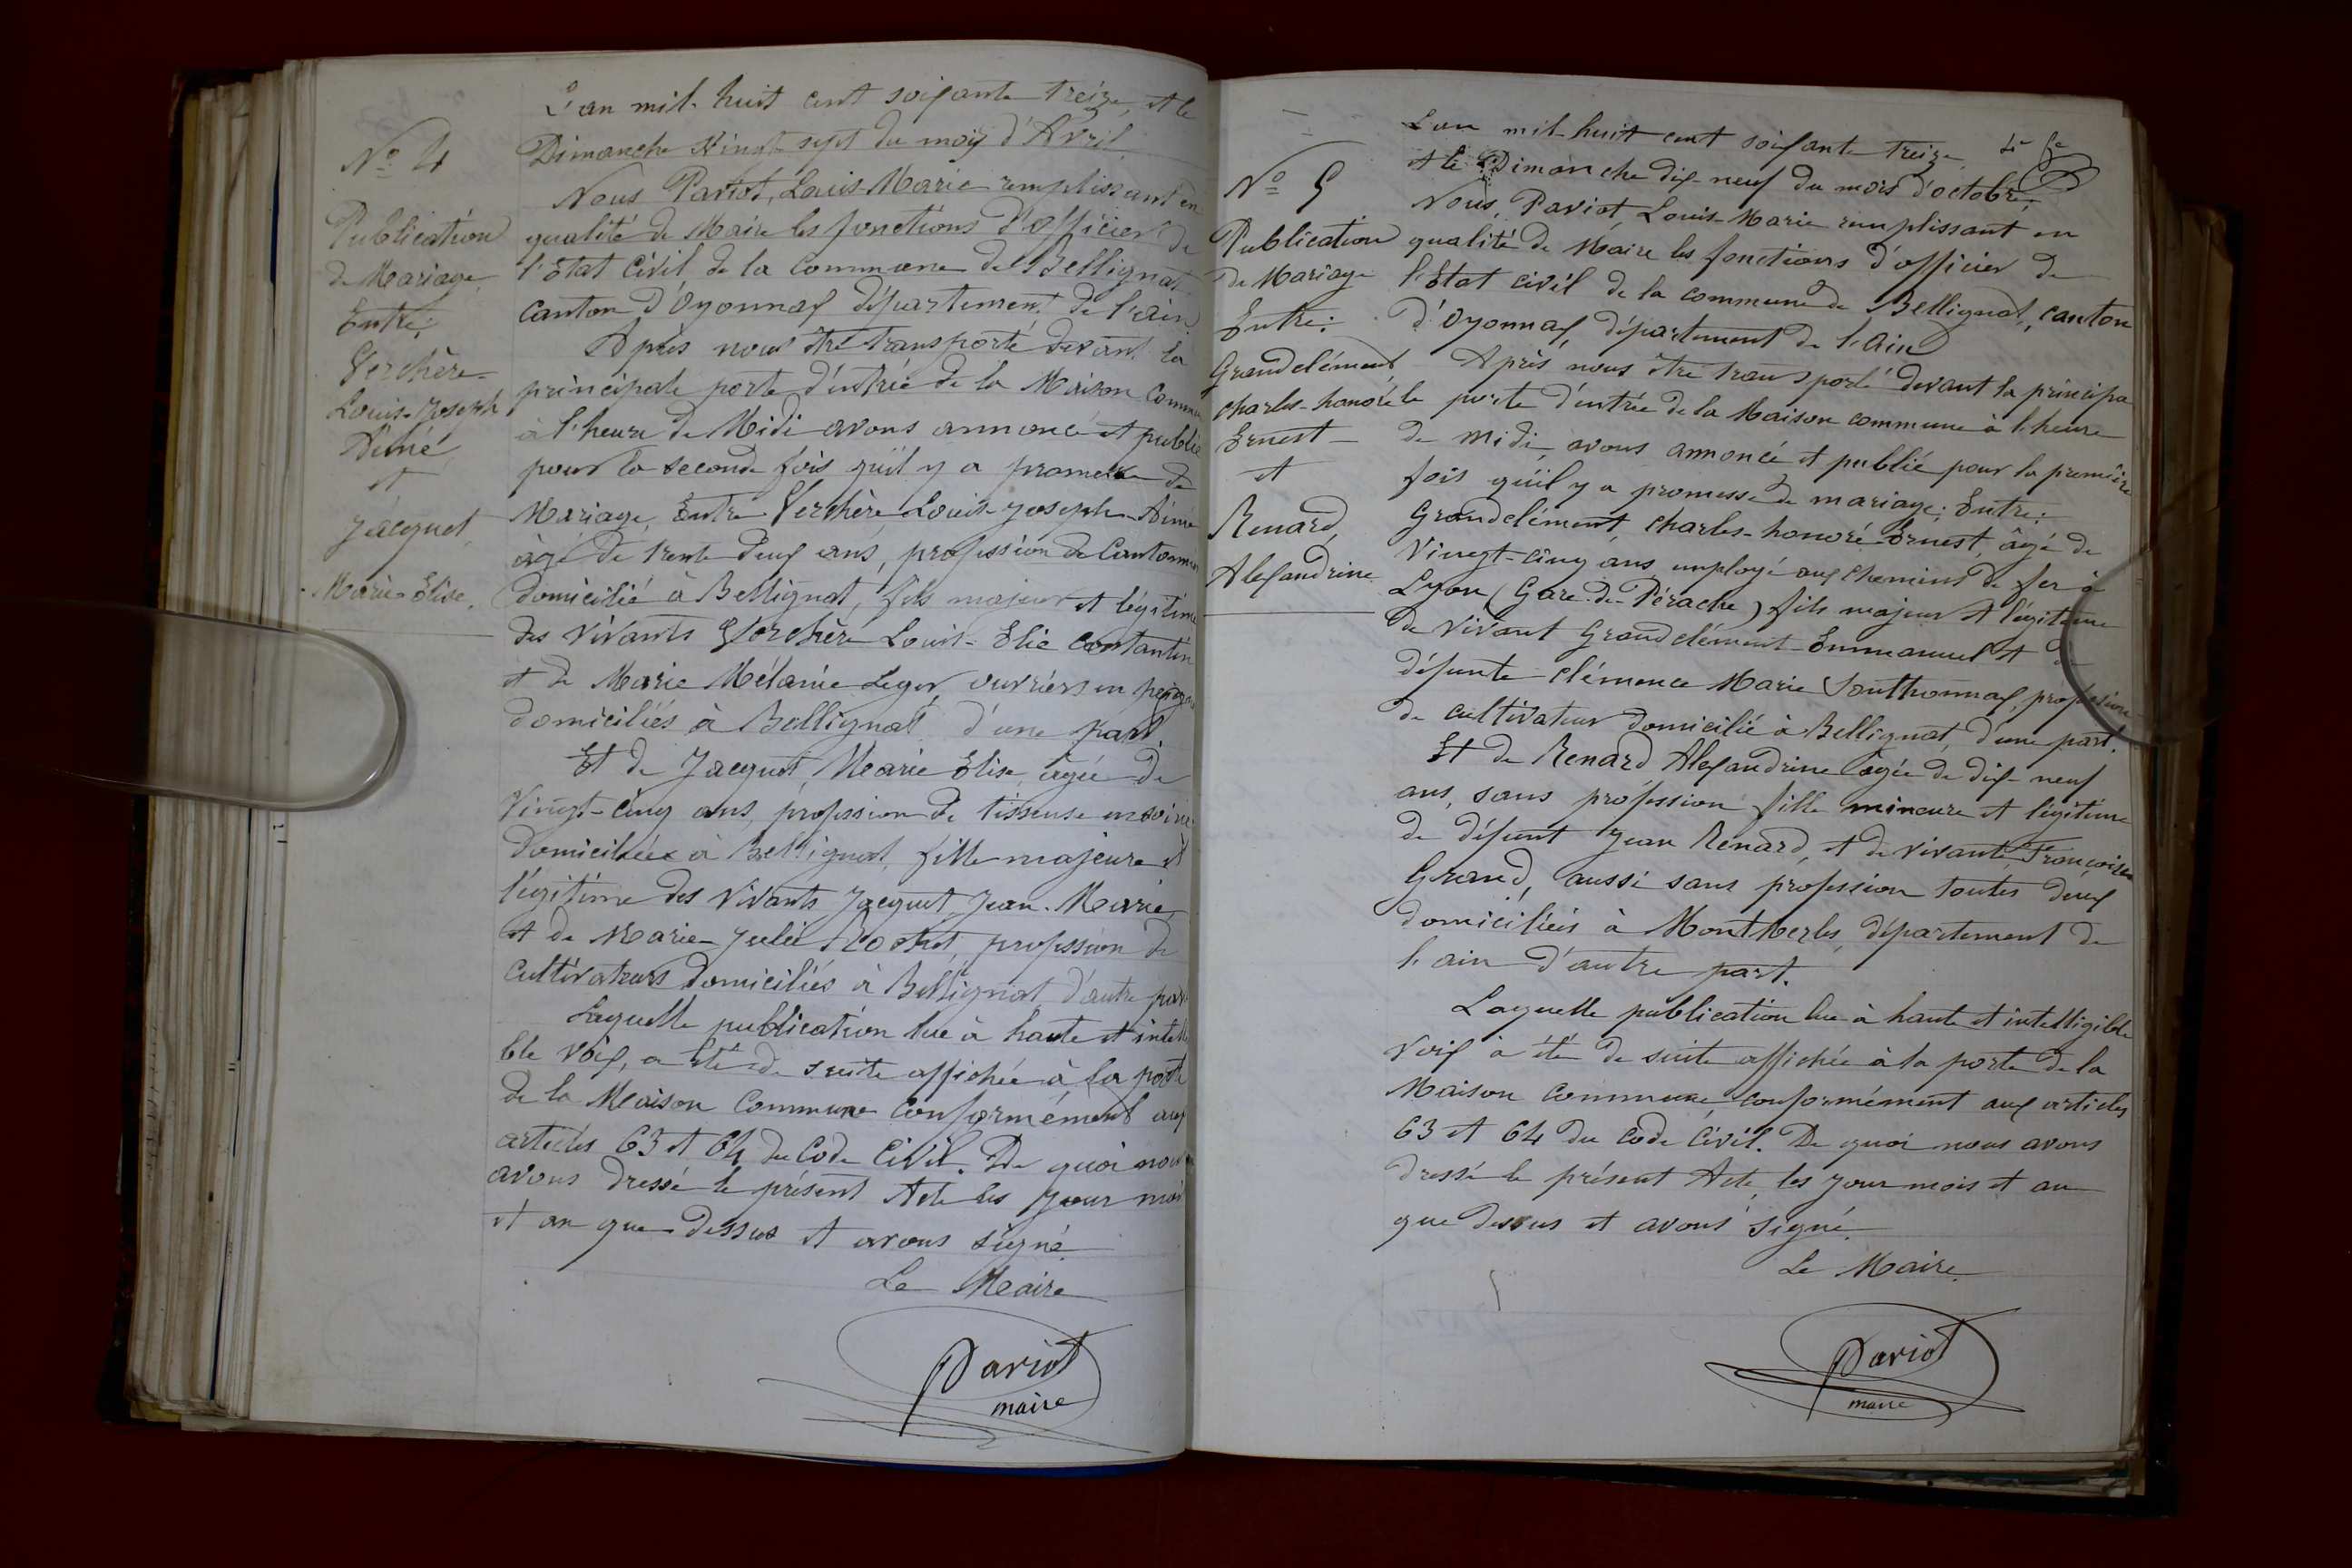 L'an mil huit cent soixante treize, et le
Dimanche Vingt sept du mois d'Avril
Nous Pariot, Louis-Marie remplissant en
qualité de Maire les fonctions d'officier de
l'Etat Civil de la Commune de Bellignat
canton d'Oyonnax département de l'ain.
Après nous être transporté devant la
principale porte d'entrée de la Maison Commune
à l'heure de Midi avons annoncé et publié
pour la seconde fois qu'il y a promesse de
Mariage, Entre Verchère Louis-Joseph-Aimé
âgé de trente deux ans, profession de Cantonnier
domicilié à Bellignat, fils majeur et légitime
des vivants Verchère Louis-Elie Constantin
et de Marie Mélanie Leger, ouvriers en peignes
domiciliés à Bellignat d'une part.
Et de Jacquet, Marie Elise âgée de
Vingt-Cinq ans, profession de tisseuse en soie
domiciliée à Bellignat, fille majeure et
légitime des Vivants Jacquet Jean-Marie,
et de Marie-Julie Rochet, profession de
Cultivateurs domiciliés à Bellignat d'autre part
Laquelle publication lue à haute et intelli
ble voix, a été de suite affichée à la porte
de la Maison Commune Conformément aux
articles 63 et 64 du Code Civil. De quoi nous
avons dressé le présent Acte les jour mois
et an que dessus et avons signé.
Le Maire
Pariot
maire
No 4
Publication
de Mariage
Entre:
Verchère
Louis-Joseph
Aimé
et
Jacquet
Marie-Elise.
L'an mil-huit cent soixante treize
et le Dimanche dix-neuf du mois d'octobre,
Nous, Pariot, Louis-Marie remplissant en
qualité de Maire les fonctions d'officier de
l'Etat civil de la commune de Bellignat, canton
d'Oyonnax, département de l'Ain
Après nous être transporté devant la principa
le porte d'entrée de la Maison commune à l'heure
de midi, avons annoncé et publié pour la première
fois qu'il y a promesse de mariage; Entre:
Grandclément, charles-honoré-Ernest, âgé de
Vingt-cinq ans, employé aux chemins de fer à
Lyon (Gare-de-Pérache) fils majeur et légitime
de vivant Grandclément-Emmanuel et de
défunte clémence Marie Southonnax, profession
de cultivateur domicilié à Bellignat, d'une part.
Et de Renard Alexandrine âgée de dix-neuf
ans, sans profession fille mineure et légitime
de défunt Jean Renard, et de vivante Françoise
Grand, aussi sans profession toutes deux
domiciliées à Montmerle, département de
l'ain d'autre part.
Laquelle publication lue à haute et intelligible
voix à été de suite affichée à la porte de la
Maison commune conformément aux articles
63 et 64 du Code Civil. De quoi nous avons
dressé le présent Acte, les jour mois et an
que dessus et avons signé.
Le Maire.
Pariot
maire
No 5
Publication
de Mariage
Entre:
Grandclément
charles-honoré
Ernest
et
Renard,
Alexandrine